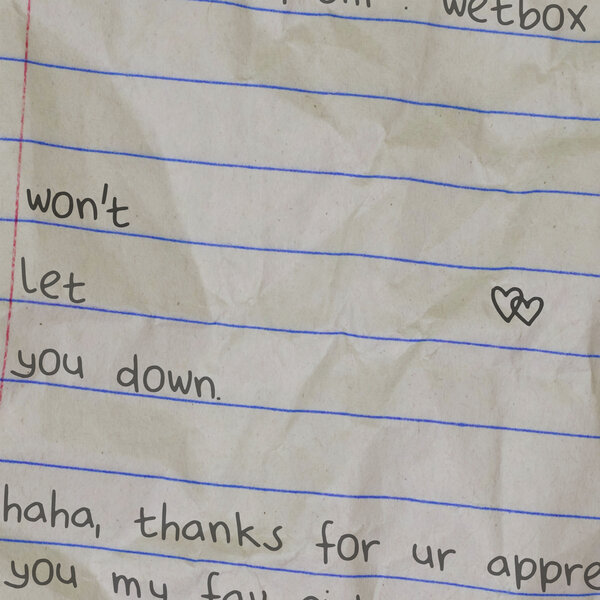 wetbox
won't
let
you down.
haha, thanks for ur
you my